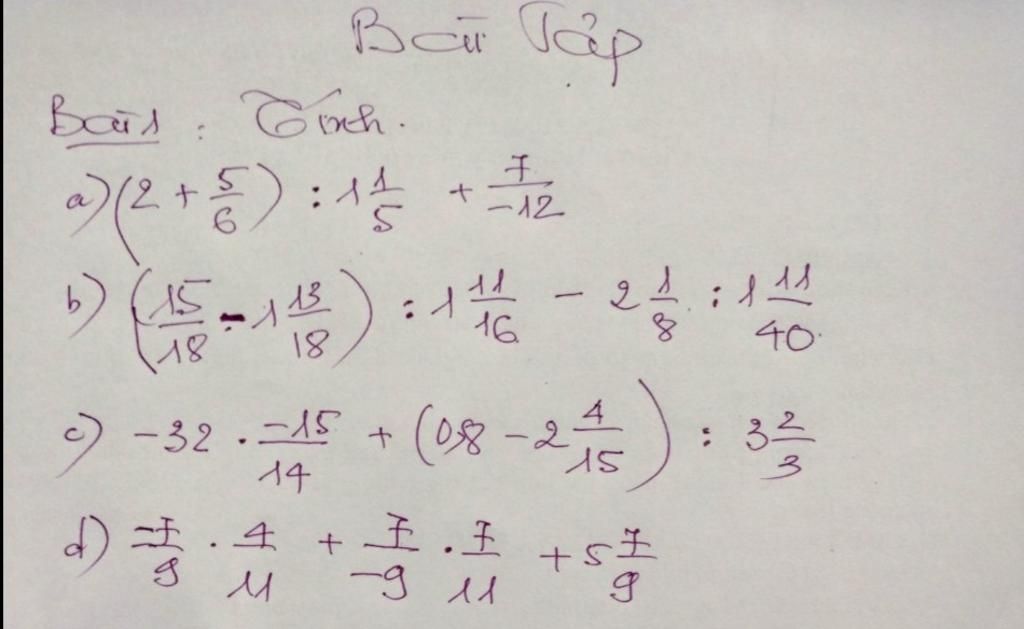 Bài Tập
Bài 1 : Tính.
a) (2 + 5/6) : 1 1/5 + 7/-12
b) (15/18 - 1 13/18) : 1 11/16 - 2 1/8 : 1 11/40
c) -32 . -15/14 + (0,8 - 2 4/15) : 3 2/3
d) -7/9 . 4/11 + 7/-9 . 7/11 + 5 7/9